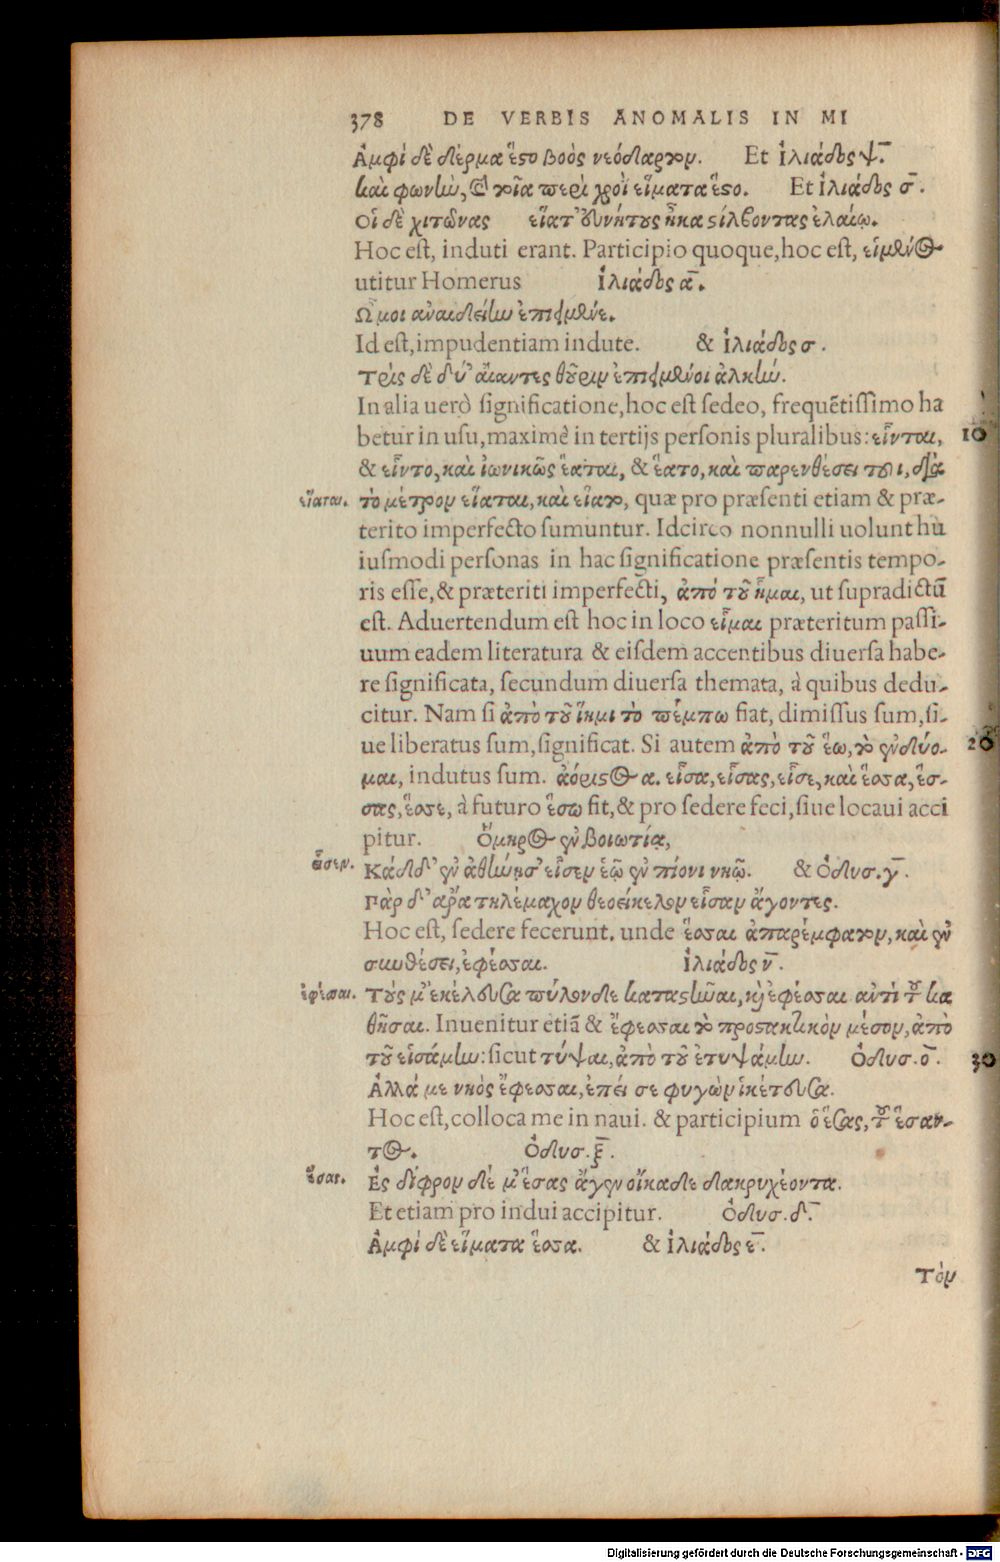 378 DE VERBIS ANOMALIS IN MI
Ἀμφὶ δὲ δέρμα ἕστο βοὸς νεόδαρτον. Et ἰλιάδος ψ̄.
καὶ φωνὴν, καὶ τοῖα περὶ χροῒ εἵματα ἕστο. Et ἰλιάδος σ̄.
Οἱ δὲ χιτῶνας εἵατ' ἐυνήτους ἧκα στίλβοντας ἐλαίῳ.
Hoc est, induti erant. Participio quoque, hoc est, εἱμένος
utitur Homerus ἰλιάδος ᾱ.
Ὤ μοι ἀναιδείην ἐπιειμένε.
Id est, impudentiam indute. & ἰλιάδος σ.
Τρὶς δὲ δύ' αἴαντες θοῦριν ἐπιειμένοι ἀλκήν.
In alia uerò significatione, hoc est sedeo, frequẽtissimo ha
betur in usu, maximè in tertijs personis pluralibus: εἷνται, 10
& εἷντο, καὶ ἰωνικῶς ἕαται, & ἕατο, καὶ παρενθέσει τοῦ ι, διὰ
εἵαται. τὸ μέτρον εἵαται, καὶ εἵατο, quæ pro præsenti etiam & præ-
terito imperfecto sumuntur. Idcirco nonnulli uolunt hu
iusmodi personas in hac significatione præsentis tempo-
ris esse, & præteriti imperfecti, ἀπό τοῦ ἧμαι, ut supradictũ
est. Aduertendum est hoc in loco εἷμαι præteritum passi-
uum eadem literatura & eisdem accentibus diuersa habe-
re significata, secundum diuersa themata, à quibus dedu-
citur. Nam si ἀπὸ τοῦ ἵημι τὸ πέμπω fiat, dimissus sum, si-
ue liberatus sum, significat. Si autem ἀπὸ τοῦ ἕω, τὸ ἐνδύο- 20
μαι, indutus sum. ἀόριστος α. εἷσα, εἷσας, εἷσε, καὶ ἕσσα, ἕσ-
σας, ἕσσε, à futuro ἕσω fit, & pro sedere feci, siue locaui acci
pitur. Ὅμηρος ἐν βοιωτίᾳ,
εἷσεν. Κάδδ' ἐν ἀθήνῃσ' εἷσεν ἑῷ ἐν πίονι νηῷ. & ὀδυσ. γ̄.
Πὰρ δ' ἄρα τηλέμαχον θεοείκελον εἷσαν ἄγοντες.
Hoc est, sedere fecerunt. unde ἕσσαι ἀπαρέμφατον, καὶ ἐν
συνθέσει, ἐφέσσαι. ἰλιάδος ν̄.
ἐφέσσαι. Τούς μ' ἐκέλευσα πύλονδε καταστῆσαι, καὶ ἐφέσσαι ἀντὶ τοῦ κα
θῆσαι. Inuenitur etiã & ἔφεσσαι τὸ προστακτικὸν μέσον, ἀπὸ
τοῦ εἱσάμην: sicut τύψαι, ἀπὸ τοῦ ἐτυψάμην. ὀδυσ. ο̄. 30
Ἀλλά με νηὸς ἔφεσσαι, ἐπεί σε φυγὼν ἱκέτευσα.
Hoc est, colloca me in naui. & participium ὁ ἕσας, τοῦ ἕσαν-
τος. ὀδυσ. ξ̄.
ἕσας. Ἐς δίφρον δέ μ' ἕσας ἄγεν οἴκαδε δακρυχέοντα.
Et etiam pro indui accipitur. ὀδυσ. δ̄.
Ἀμφὶ δὲ εἵματα ἕσσα. & ἰλιάδος ε̄.
Τὸν
Digitalisierung gefördert durch die Deutsche Forschungsgemeinschaft - DFG